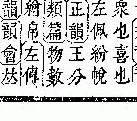 衆也喜也
左佩紛帨
正韻王分
類篇物數
帛左傳
韻韻會𠀤